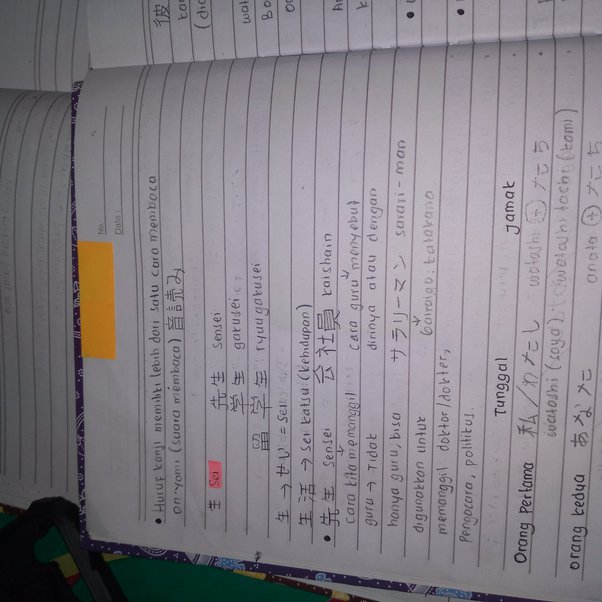 No.
Date:
• Huruf kanji memiliki lebih dari satu cara membaca
on'yomi (suara membaca) 音読み
生 sei 先生 sensei
学生 gakusei
留学生 ryuugakusei
生 → せい = sei
生活 → sei katsu (kehidupan)
• 先生 sensei 会社員 kaishain
cara kita memanggil cara guru menyebut
guru → Tidak dirinya atau dengan
hanya guru, bisa サラリーマン sarari-man
digunakan untuk Gairaigo: katakana
memanggil doktor/dokter,
pengacara, politikus.
Tunggal Jamak
Orang Pertama 私/わたし watashi + たち
watashi (saya) (watashi tachi (kami)
orang kedua あなた anata + たち